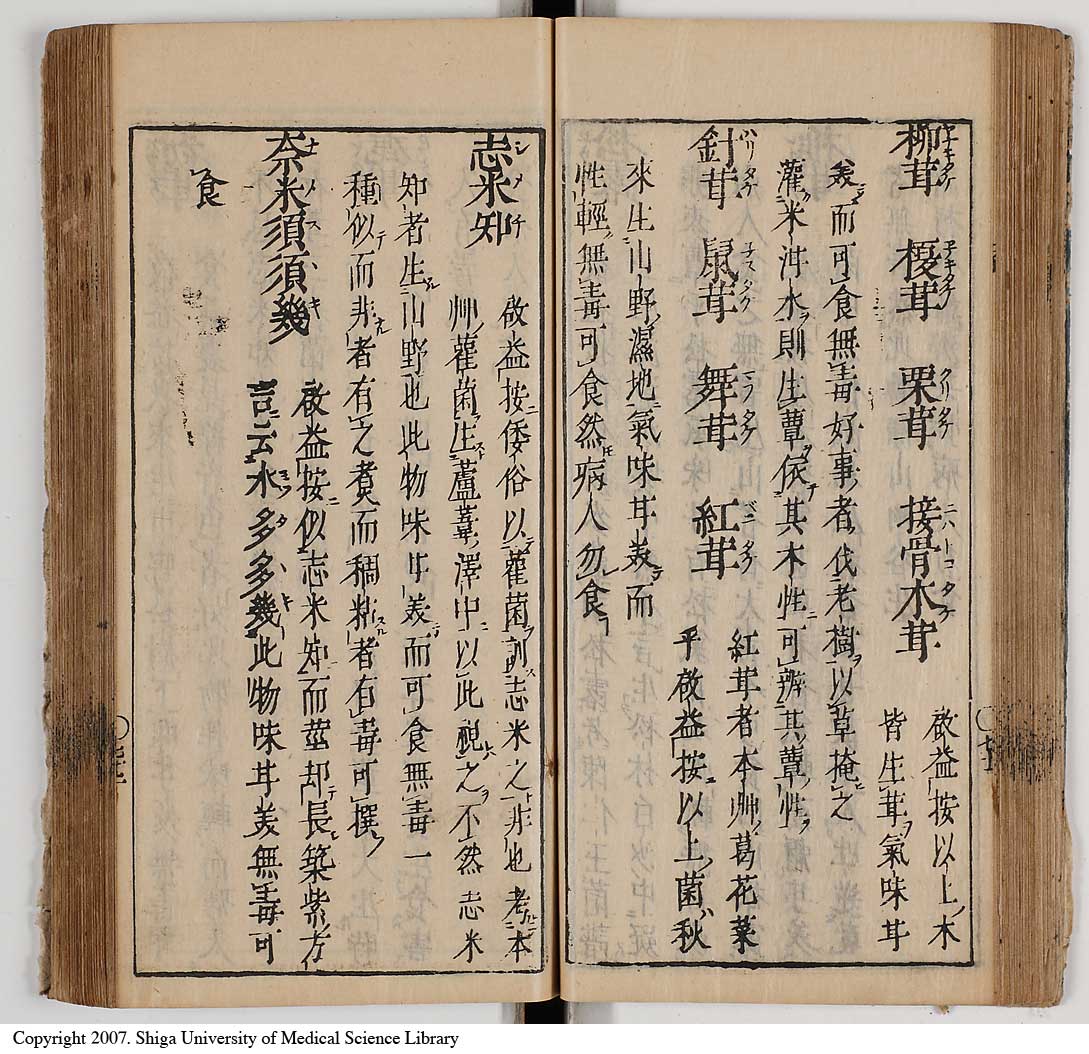 柳茸 榎茸 栗茸 接骨木茸 啟益按以上木
皆生茸氣味甘
美而可食無毒好事者伐老樹以草掩之
灌米泔水則生蕈依其木性可辨其蕈性
針茸 鼠茸 舞茸 紅茸 紅茸者本艸葛花菜
平啟益按以上菌秋
來生山野濕地氣味甘美而
性輕無毒可食然病人勿食
志米知 啟益按倭俗以雚菌訓志米之非也考本
艸雚菌生蘆葦澤中以此視之不然志米
知者生山野也此物味甘美而可食無毒一
種似而非者有之煮而稠粘者有毒可撰
奈米須須幾 啟益按似志米知而莖却長築紫方
言云水多多幾此物味甘美無毒可
食
Copyright 2007. Shiga University of Medical Science Library